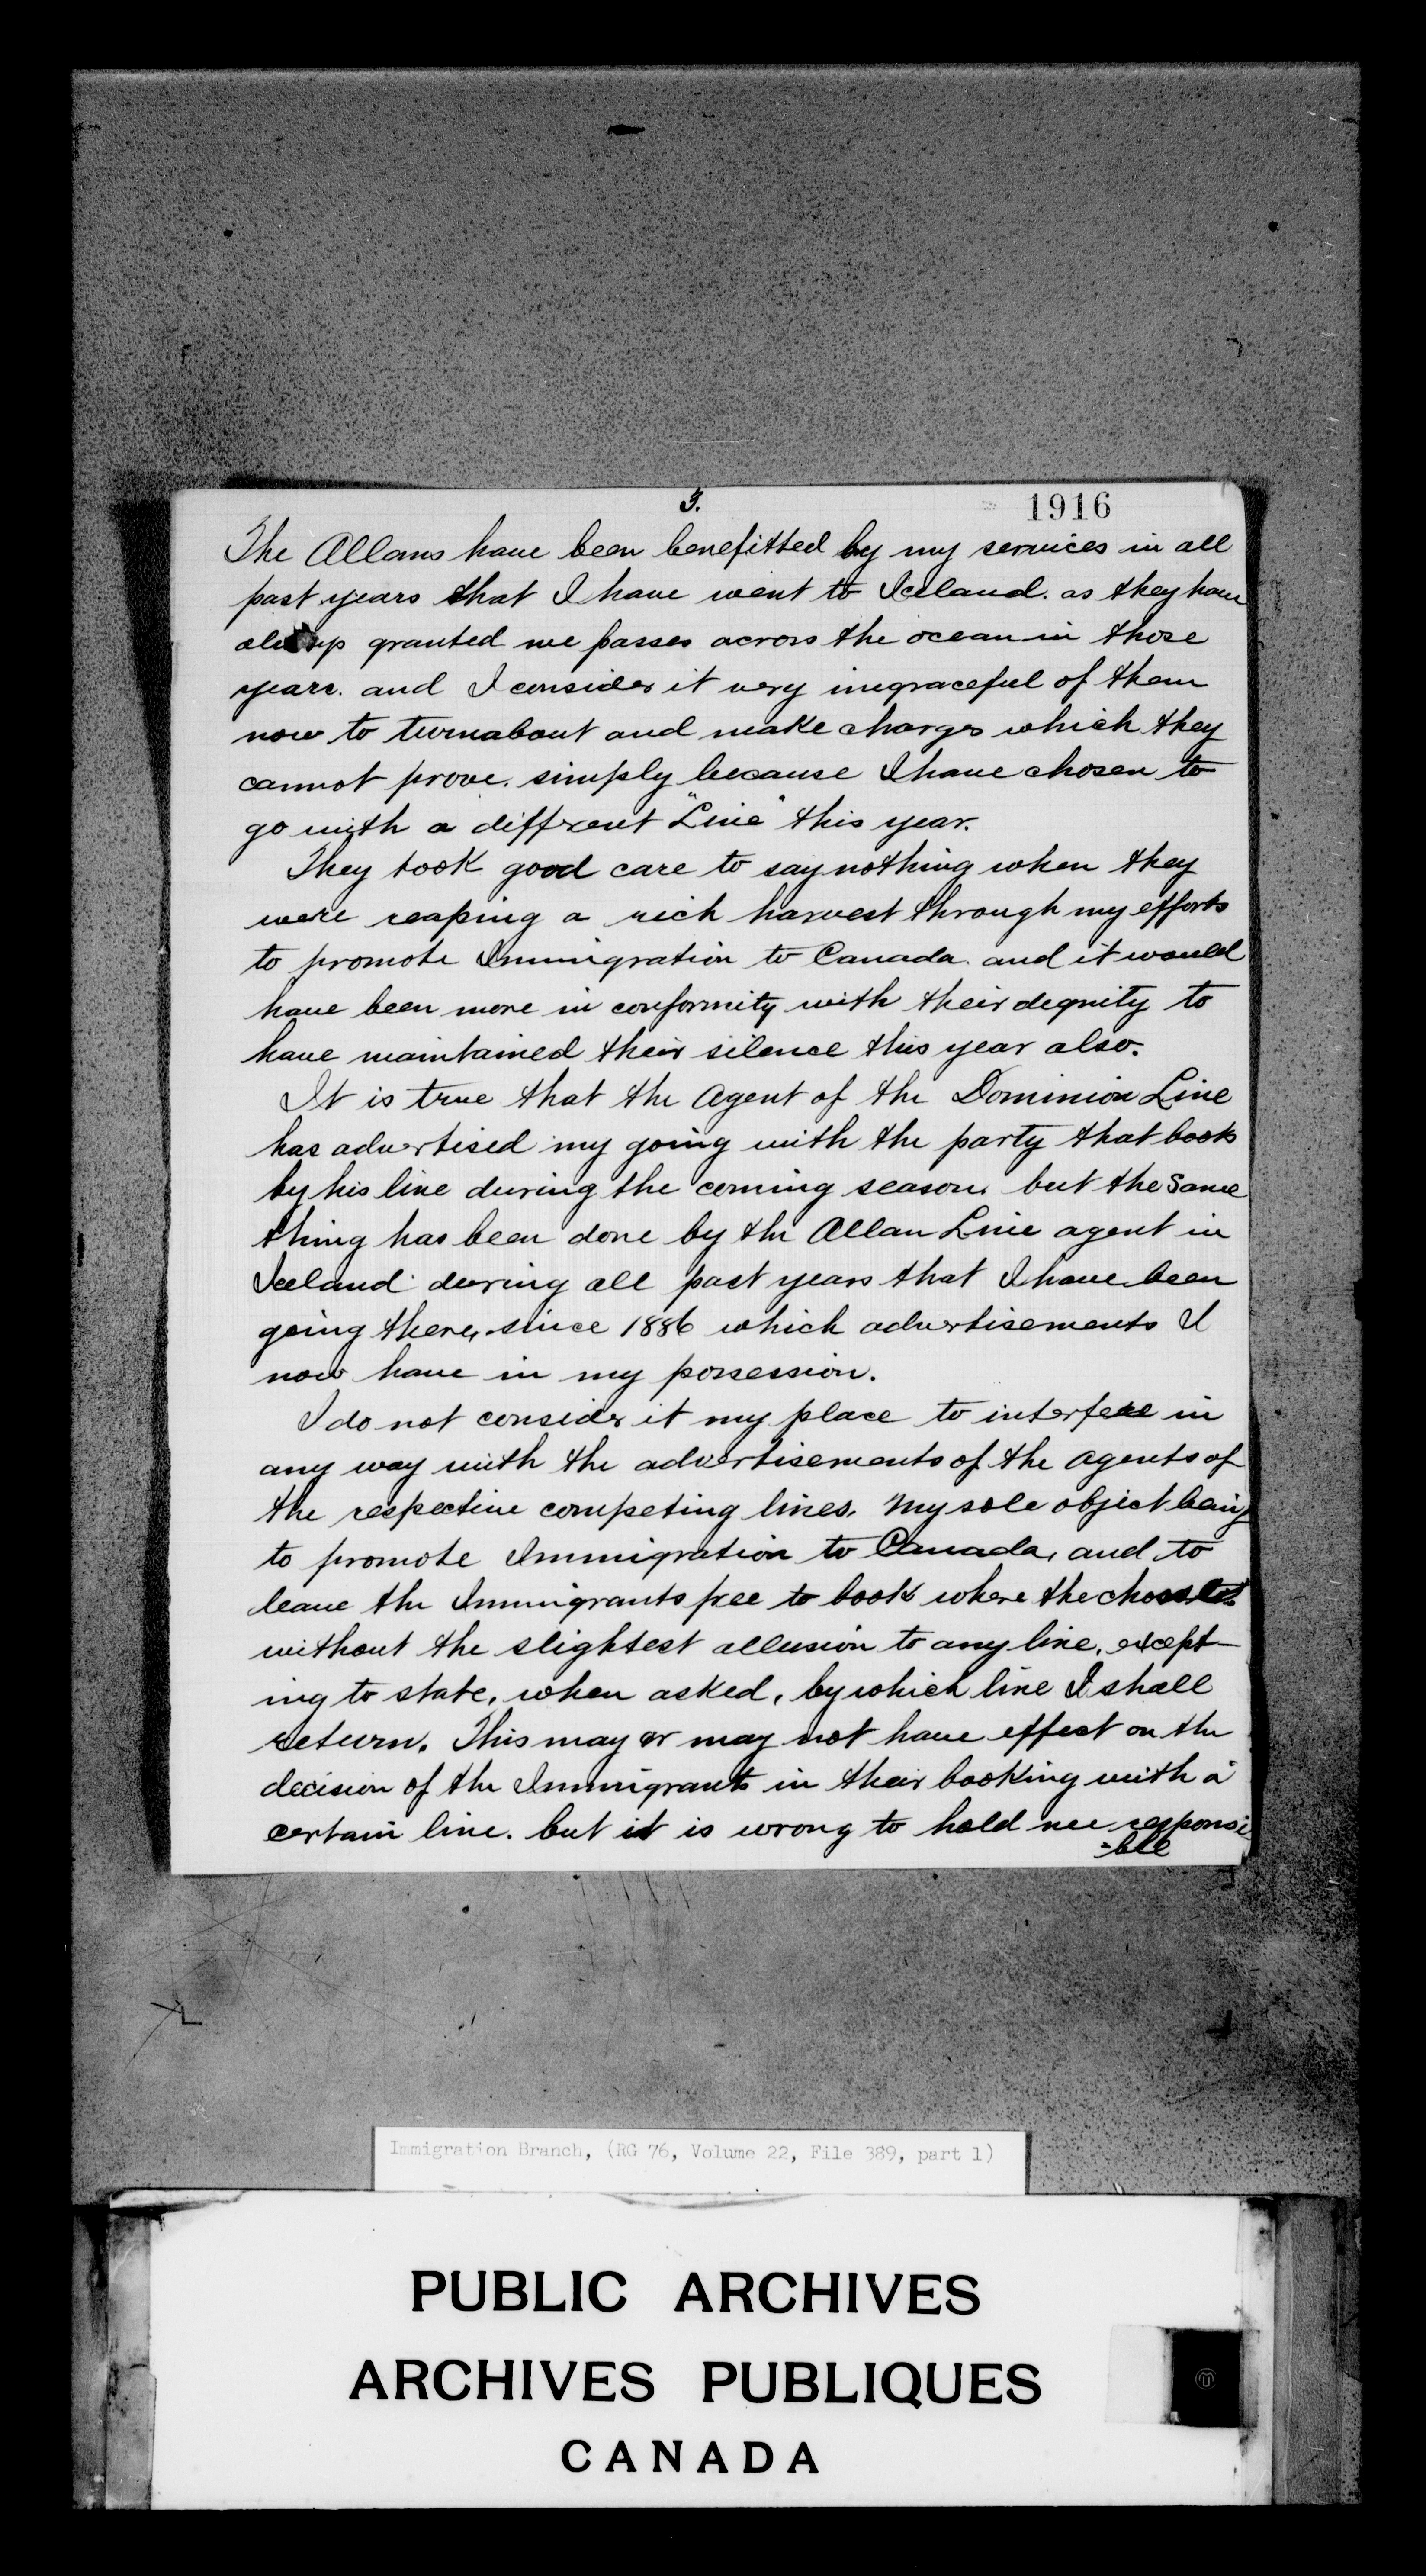 3.
1916
The Allans have been benefitted by my services in all
past years that I have went to Iceland. as they have
granted me passes across the ocean in those
years. and I consider it very ungraceful of them
now to turnabout and make charges which they
cannot prove. simply because I have chosen to
go with a diffrent "Line" this year.
They took good care to say nothing when they
were reaping a rich harvest through my efforts
to promote Immigration to Canada. and it would
have been more in conformity with their degnity to
have maintained their silence this year also.
It is true that the Agent of the Dominion Line
has advertised my going with the party that book
by his line during the coming season, but the same
thing has been done by the Allan Line agent in
Iceland during all past years that I have been
going there, since 1886 which advertisements I
now have in my possession.
I do not consider it my place to interfere in
any way with the advertisements of the agents of
the respective competing lines. My sole object being
to promote Immigration to Canada, and to
leave the Immigrants free to book where the
without the slightest allusion to any line, except-
ing to state, when asked, by which line I shall
return. This may or may not have effect on the
decision of the Immigrants in their booking with a
certain line. but it is wrong to hold me responsi
=ble
Immigration Branch, (RG 76, Volume 22, File 389, part 1)
PUBLIC ARCHIVES
ARCHIVES PUBLIQUES
CANADA